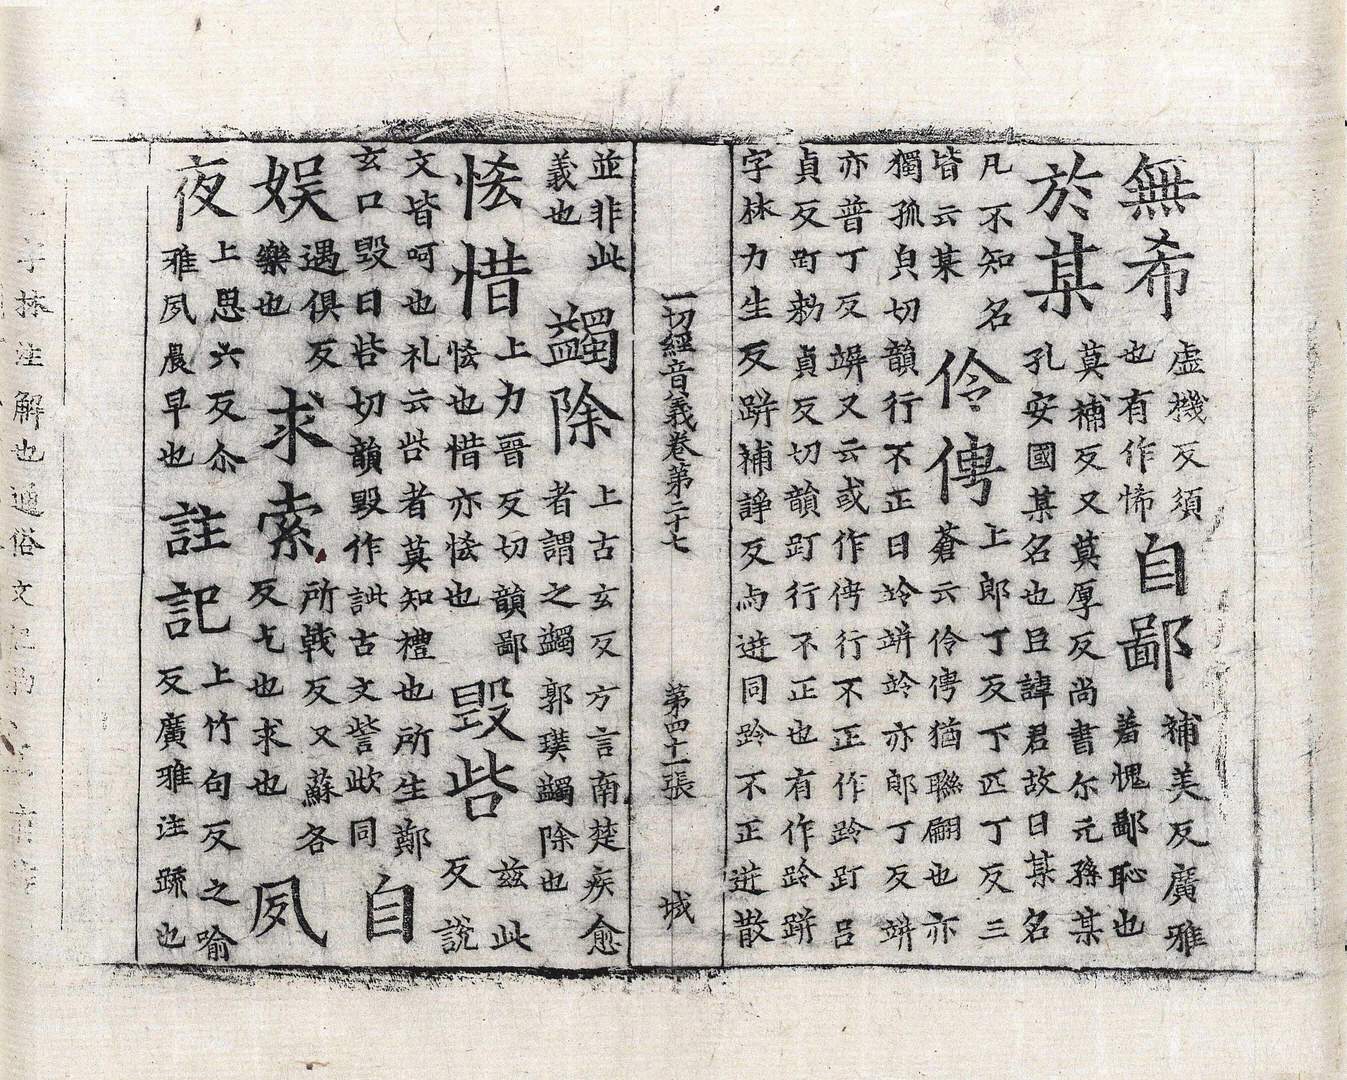 無希虛機反須也有作悕自鄙補美反廣雅羞愧鄙恥也
於某莫補反又莫厚反尚書尔元孫某孔安國某名也臣諱君故曰某名
凡不知名皆云某伶俜上郎丁反下匹丁反三蒼云伶俜猶聯翩也亦
獨孤皃切韻行不正曰竛竮竛亦郎丁反竮亦普丁反竮又云或作俜行不正作跉䟓呂
貞反䟓勑貞反切韻䟓行不正也有作跉跰字林力生反跰補諍反尚迸同跉不正迸散
一切經音義卷第二十七 第四十一張 城
並非此義也蠲除上古玄反方言南楚疾愈者謂之蠲郭璞蠲除也
恡惜上力晉反切韻鄙恡也惜亦恡也毀呰茲此反說
文皆呵也礼云呰者莫知禮也所生鄭玄口毀曰呰切韻毀作訿古文訾欪同自
娛遇俱反樂也求索所戟反又蘇各反乞也求也夙
夜上思六反尒雅夙晨早也註記上竹句反之喻反廣雅注疏也
字林注解也通俗文